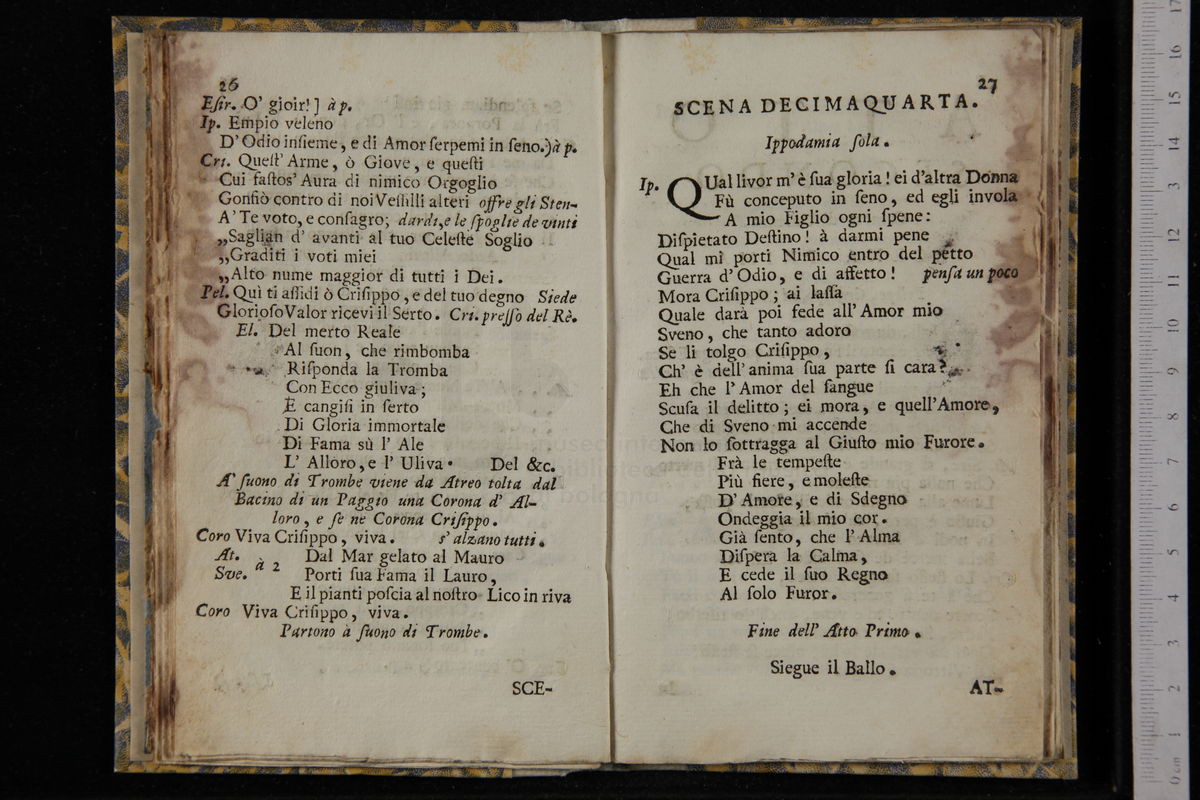 26
Eſir. O' gioir! ] à p.
Ip. Empio veleno
D'Odio inſieme, e di Amor ſerpemi in ſeno.)à p.
Cri. Queſt'Arme, ò Giove, e queſti
Cui faſtos' Aura di nimico Orgoglio
Gonfiò contro di noi Veſſilli alteri offre gli Sten-
A' Te voto, e conſagro; dardi, e le ſpoglie de vinti
„Saglian d' avanti al tuo Celeſte Soglio
„Graditi i voti miei
„Alto nume maggior di tutti i Dei.
Pel. Quì ti aſſidi ò Criſippo, e del tuo degno Siede
Glorioſo Valor ricevi il Serto. Cri. preſſo del Rè.
El. Del merto Reale
Al ſuon, che rimbomba
Riſponda la Tromba
Con Ecco giuliva;
E cangiſi in ſerto
Di Gloria immortale
Di Fama sù l' Ale
L' Alloro, e l' Uliva. Del &c.
A' ſuono di Trombe viene da Atreo tolta dal
Bacino di un Paggio una Corona d' Al-
loro, e ſe ne Corona Criſippo.
Coro Viva Criſippo, viva. s' alzano tutti.
At. à 2 Dal Mar gelato al Mauro
Sve. Porti ſua Fama il Lauro,
E il pianti poſcia al noſtro Lico in riva
Coro Viva Criſippo, viva.
Partono à ſuono di Trombe.
SCE-
27
SCENA DECIMAQUARTA.
Ippodamia ſola.
Ip. QUal livor m'è ſua gloria! ei d'altra Donna
Fù conceputo in ſeno, ed egli invola
A mio Figlio ogni ſpene:
Diſpietato Deſtino! à darmi pene
Qual mi porti Nimico entro del petto
Guerra d'Odio, e di affetto! penſa un poco
Mora Criſippo; ai laſſa
Quale darà poi fede all'Amor mio
Sveno, che tanto adoro
Se li tolgo Criſippo,
Ch' è dell'anima ſua parte ſi cara?
Eh che l'Amor del ſangue
Scuſa il delitto; ei mora, e quell'Amore,
Che di Sveno mi accende
Non lo ſottragga al Giuſto mio Furore.
Frà le tempeſte
Più fiere, e moleſte
D'Amore, e di Sdegno
Ondeggia il mio cor.
Già ſento, che l'Alma
Diſpera la Calma,
E cede il ſuo Regno
Al ſolo Furor.
Fine dell' Atto Primo.
Siegue il Ballo.
AT-